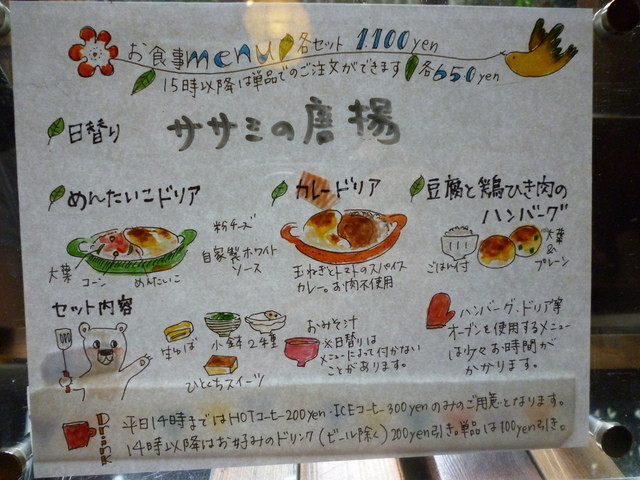 お食事menu 各セット 1.100yen
15時以降は単品でのご注文ができます 各650yen
日替り ササミの唐揚
めんたいこドリア
粉チーズ
自家製ホワイトソース
大葉 コーン めんたいこ
カレードリア
玉ねぎとトマトのスパイス
カレー。お肉不使用
豆腐と鶏ひき肉の
ハンバーグ
ごはん付
大葉
&
プレーン
セット内容
生ゆば
小鉢2種
ひとくちスイーツ
おみそ汁
※日替りは
メニューによって付かない
ことがあります。
ハンバーグ・ドリア等
オーブンを使用するメニュー
は少々お時間が
かかります。
Drink
平日14時まではHOTコーヒー200yen・ICEコーヒー300yenのみのご用意となります。
14時以降はお好みのドリンク(ビール除く)200yen引き。単品は100yen引き。